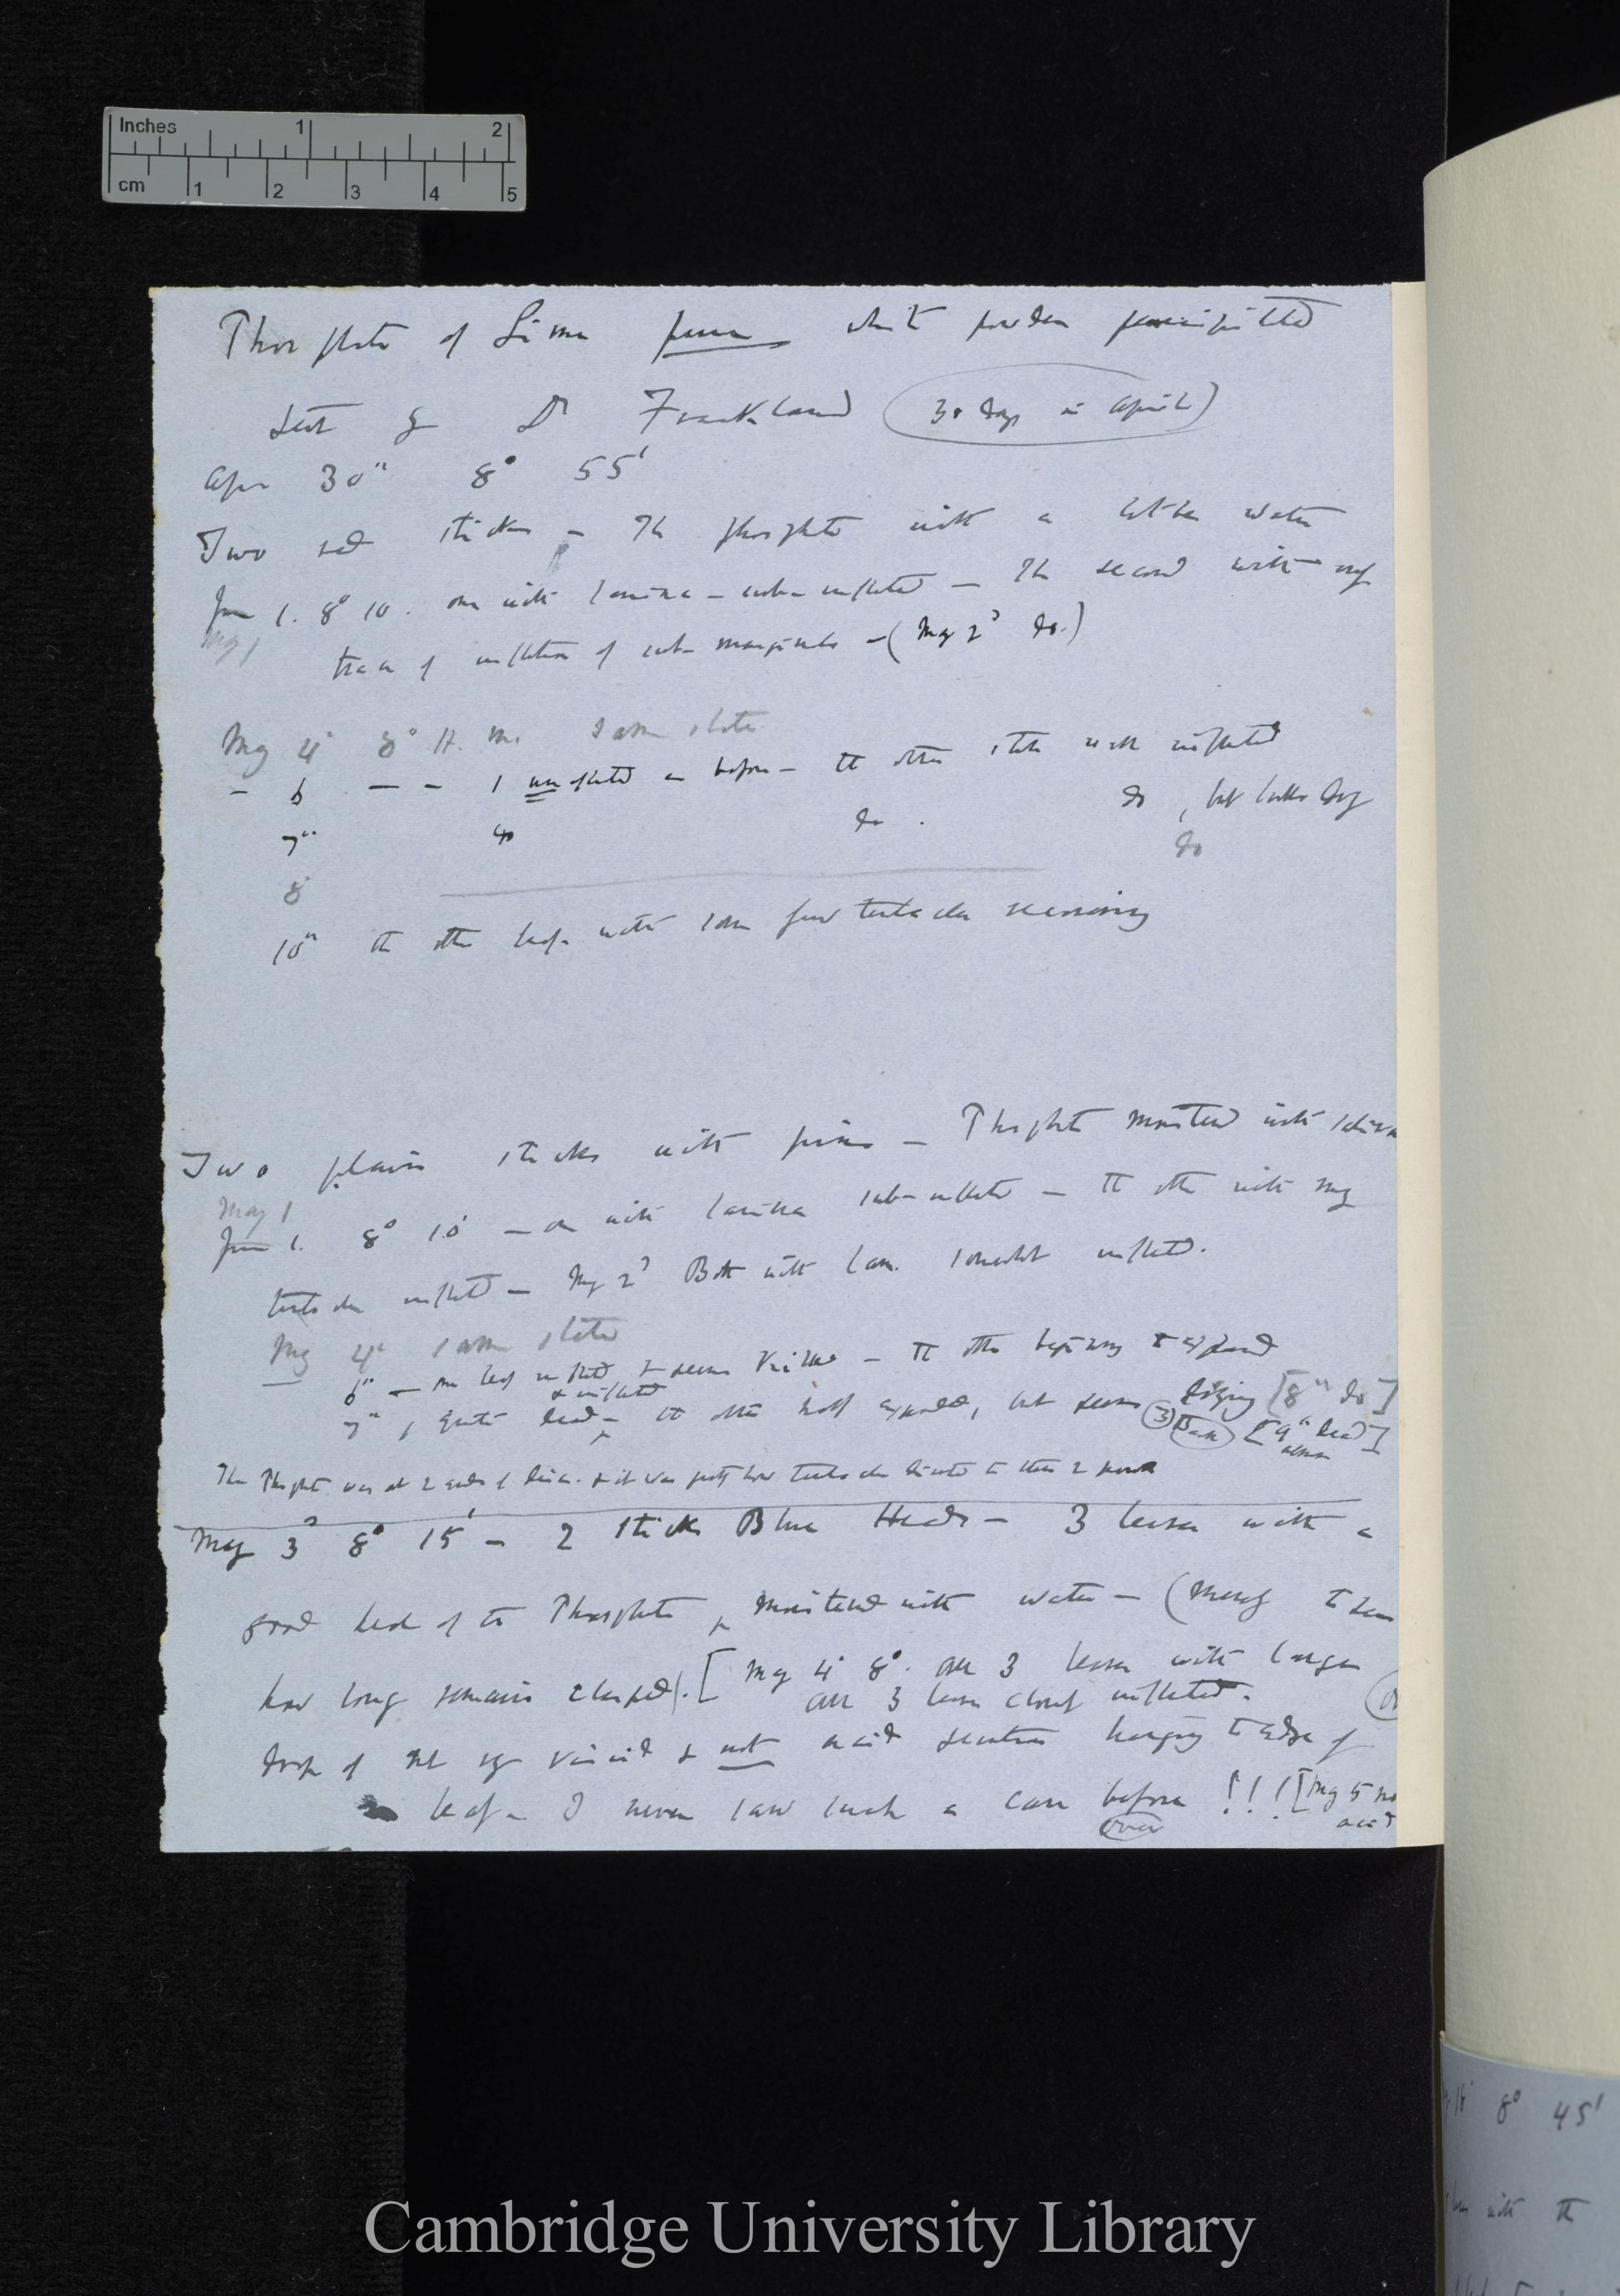 Inches 1 2
cm 1 2 3 4 5
Phosphate of Lime pure white powder precipitated
sent by Dr Frankland (30 days in April)
Apr 30th 8° 55'
Two red sticks — The phosphate with a little water
June 1. 8° 10'. one with lamina — sub-inflected — The second with only
May 1
trace of inflection of sub-marginals — (May 2d do.)
May 4th 8° A. m. same state
— 6 — — 1 uninflected as before — the other still well inflected
7th do do. do, but looks dry
8 do
10th the other leaf with some few tentacles
Two plain sticks with pins — Phosphate moistened with saliva
May 1
June 1. 8° 10' — one with lamina sub-inflected — the other with many
tentacles inflected — May 2d Both with lam. somewhat inflected.
May 4th same state
6th — one leaf inflected & seems — the other beginning to expand
& inflected
7th, quite dead — the other half expanded, but seems dying [8th do]
(3) [9th dead]
The Phosphate was at 2 ends of disc. & it was pretty how tentacles directed to these 2
May 3d 8° 15' — 2 sticks Blue Heads — 3 leaves with a
good deal of the Phosphate, moistened with water — (merely to see
how long remains clasped). [May 4th 8°. all 3 leaves with large
all 3 leaves closely inflected.
drop of not very viscid & not acid secretion hanging to edge of
leaf — I never saw such a case before !!! [May 5 no
acid
over
8° 45'
with the
Cambridge University Library